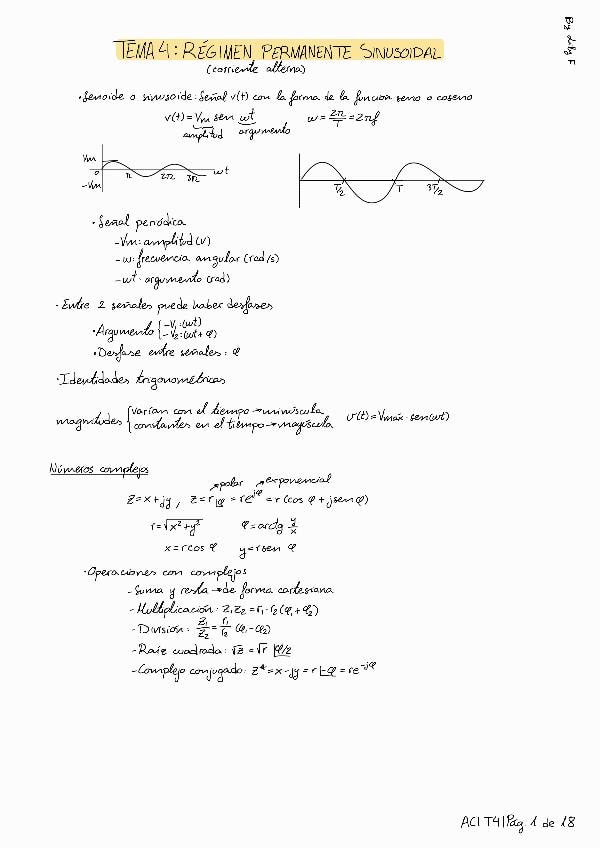 By Lily F
TEMA 4: RÉGIMEN PERMANENTE SINUSOIDAL
(corriente alterna)
· Senoide o sinusoide: Señal v(t) con la forma de la función seno o coseno
v(t) = Vm sen ωt ω = 2π/T = 2πf
amplitud argumento
Vm
0 π 2π 3π ωt
-Vm
T/2 T 3T/2
· Señal periódica
- Vm: amplitud (V)
- ω: frecuencia angular (rad/s)
- ωt: argumento (rad)
· Entre 2 señales puede haber desfases
· Argumento { - V₁: (ωt)
- V₂: (ωt + φ)
· Desfase entre señales: φ
· Identidades trigonométricas
magnitudes { varían con el tiempo → minúscula
constantes en el tiempo → mayúscula
v(t) = Vmáx · sen(ωt)
Números complejos
→ polar → exponencial
Z = x + jy, Z = r|φ = re^jφ = r (cos φ + j sen φ)
r = √x² + y² φ = arctg y/x
x = r cos φ y = r sen φ
· Operaciones con complejos
- Suma y resta → de forma cartesiana
- Multiplicación: Z₁Z₂ = r₁ · r₂ (φ₁ + φ₂)
- División: Z₁/Z₂ = r₁/r₂ (φ₁ - φ₂)
- Raíz cuadrada: √z = √r |φ/2
- Complejo conjugado: Z* = x - jy = r|-φ = re^-jφ
ACI T4|Pág. 1 de 18